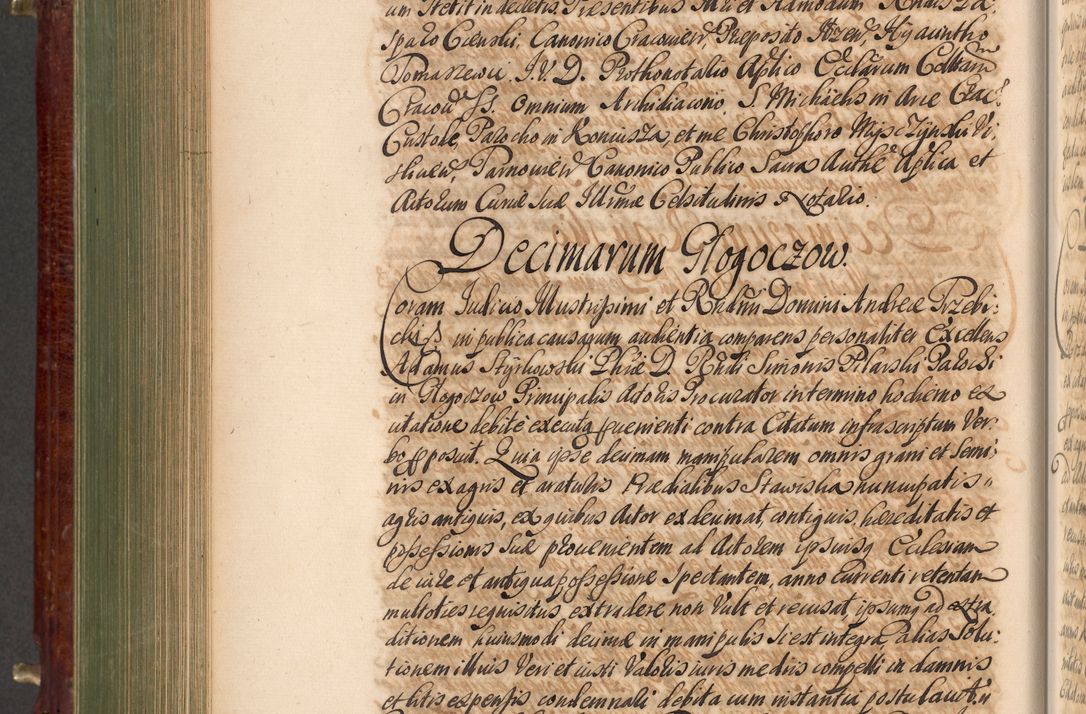 um Stetit in decletis. Presentibus Mri et Admodum Rndis Za
spalo Cienski, Canonico Cracovien, Preposito Itzen, Hyacintho
Tomaszewic. I.V.D. Prothonotalio Aplico Ecclarum Colltam
Cracov SS. Omnium Archidiacono, S. Michaelis in Arce Crac
Custole, Parocho in Koniusza, et me Christophoro Mijsczynski Vi.
sliuen, Tarnovien Canonico Publico Sacra Authe Aplica et
Actorum Curiæ Suæ Illrmæ Celsitudinis Notalio.
Decimarum Glogoczow.
Coram Iudicio Illustrissimi et Rndmi Domini Andreæ Trzebi:
cki in publica causarum audientia comparens personaliter Excellens
Adamus Styrkowski Phiæ D. Rndi Simonis Pilarski Parochi
in Glogoczow Principalis Actoris Procurator in termino hodierno ex
citatione debite executa provenienti contra Citatum infrascriptum Ver.
bo proposuit. Quia ipse decimam manipularem omnis grani et Semi:
nis ex agris et araturis Prædialibus Stawiska nuncupatis "
agris antiquis, ex quibus Actor ex decimat, contiguis, hæreditatis et
possessionis Suæ provenientem ad Actorem ipsiusq Ecclesiam
de iure et antiqua possessione Spectantem, anno currenti retentam
multoties requisitus extradere non Vult et recusat, ipsumq ad extra
ditionem huiusmodi decimæ in manipulis si est integra, alias Solu:
tionem illius Veri et iusti Valoris iuris mediis compelli in damnis
et litis expensis condemnali debita cum instantia postulavit."